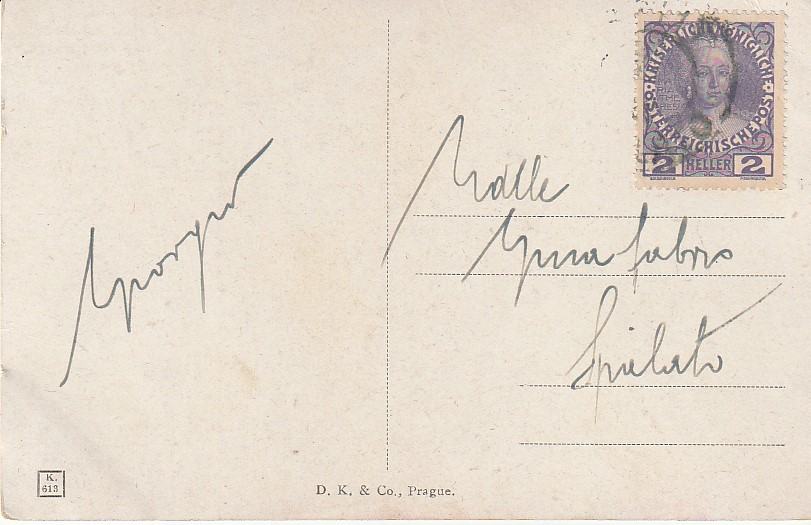 KAISERLICHKÖNIGLICHE
ÖSTERREICHISCHE POST
MARIA
THE
RESIA
2 HELLER 2
Mlle
Gina Fabris
Spalato
Giorgio
K.
613
D. K. & Co., Prague.